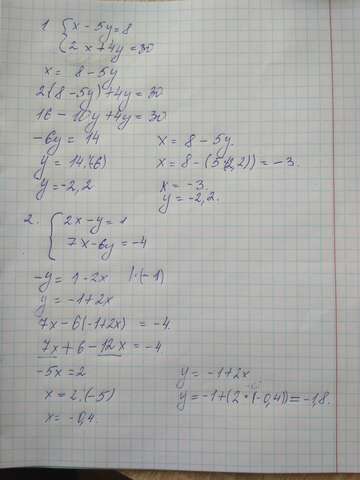 1 { x - 5y = 8
2x + 4y = 30
x = 8 - 5y
2(8 - 5y) + 4y = 30
16 - 10y + 4y = 30
-6y = 14
x = 8 - 5y.
y = 14:(-6)
x = 8 - (5·(-2,2)) = -3.
y = -2,2
x = -3.
y = -2,2.
2. { 2x - y = 1
7x - 6y = -4
-y = 1 - 2x |·(-1)
y = -1 + 2x
7x - 6(-1 + 2x) = -4
7x + 6 - 12x = -4
-5x = 2
y = -1 + 2x
x = 2:(-5)
y = -1 + (2·(-0,4)) = -1,8.
x = -0,4.